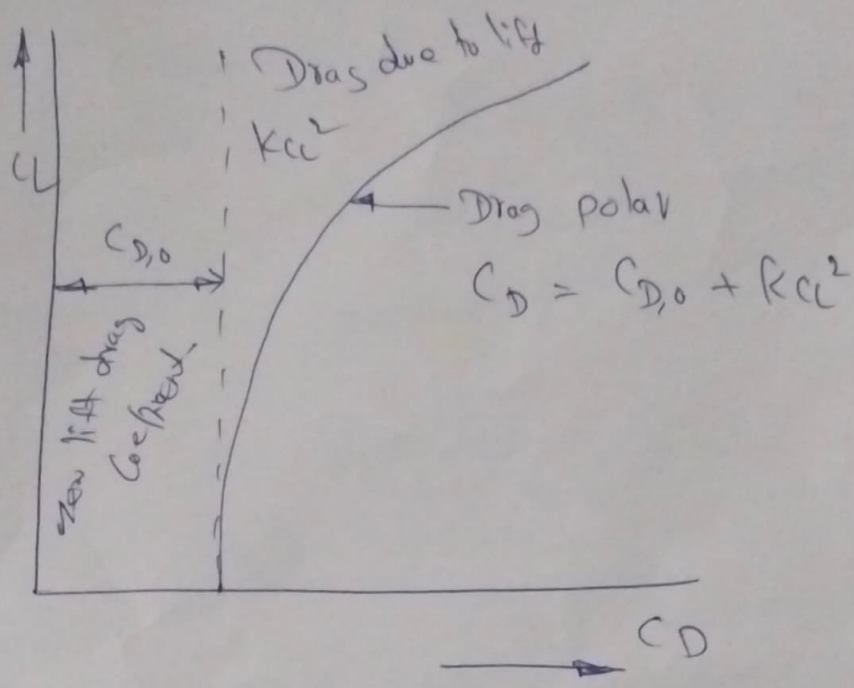 Drag due to lift
KCL²
CL
CD,0
Drag polar
CD = CD,0 + KCL²
Zero lift drag
Coefficient
CD